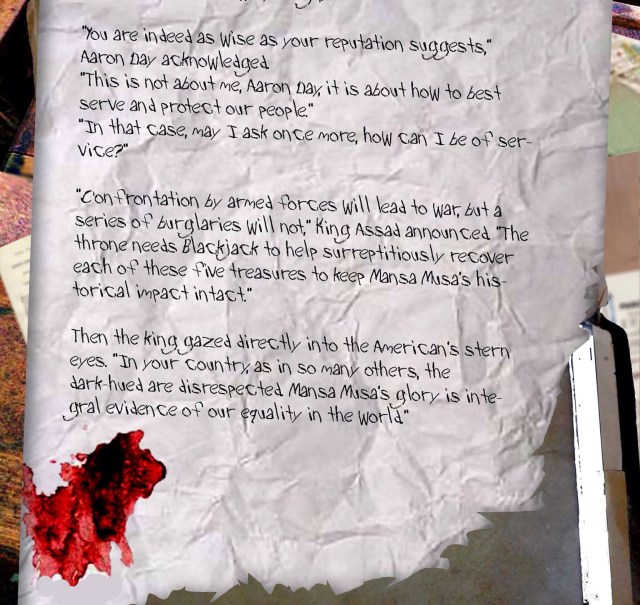 "You are indeed as wise as your reputation suggests,"
Aaron Day acknowledged.
"This is not about me, Aaron Day, it is about how to best
serve and protect our people."
"In that case, may I ask once more, how can I be of ser-
vice?"
"Confrontation by armed forces will lead to war, but a
series of burglaries will not," King Assad announced. "The
throne needs Blackjack to help surreptitiously recover
each of these five treasures to keep Mansa Musa's his-
torical impact intact."
Then the king gazed directly into the American's stern
eyes. "In your country, as in so many others, the
dark-hued are disrespected. Mansa Musa's glory is inte-
gral evidence of our equality in the world."